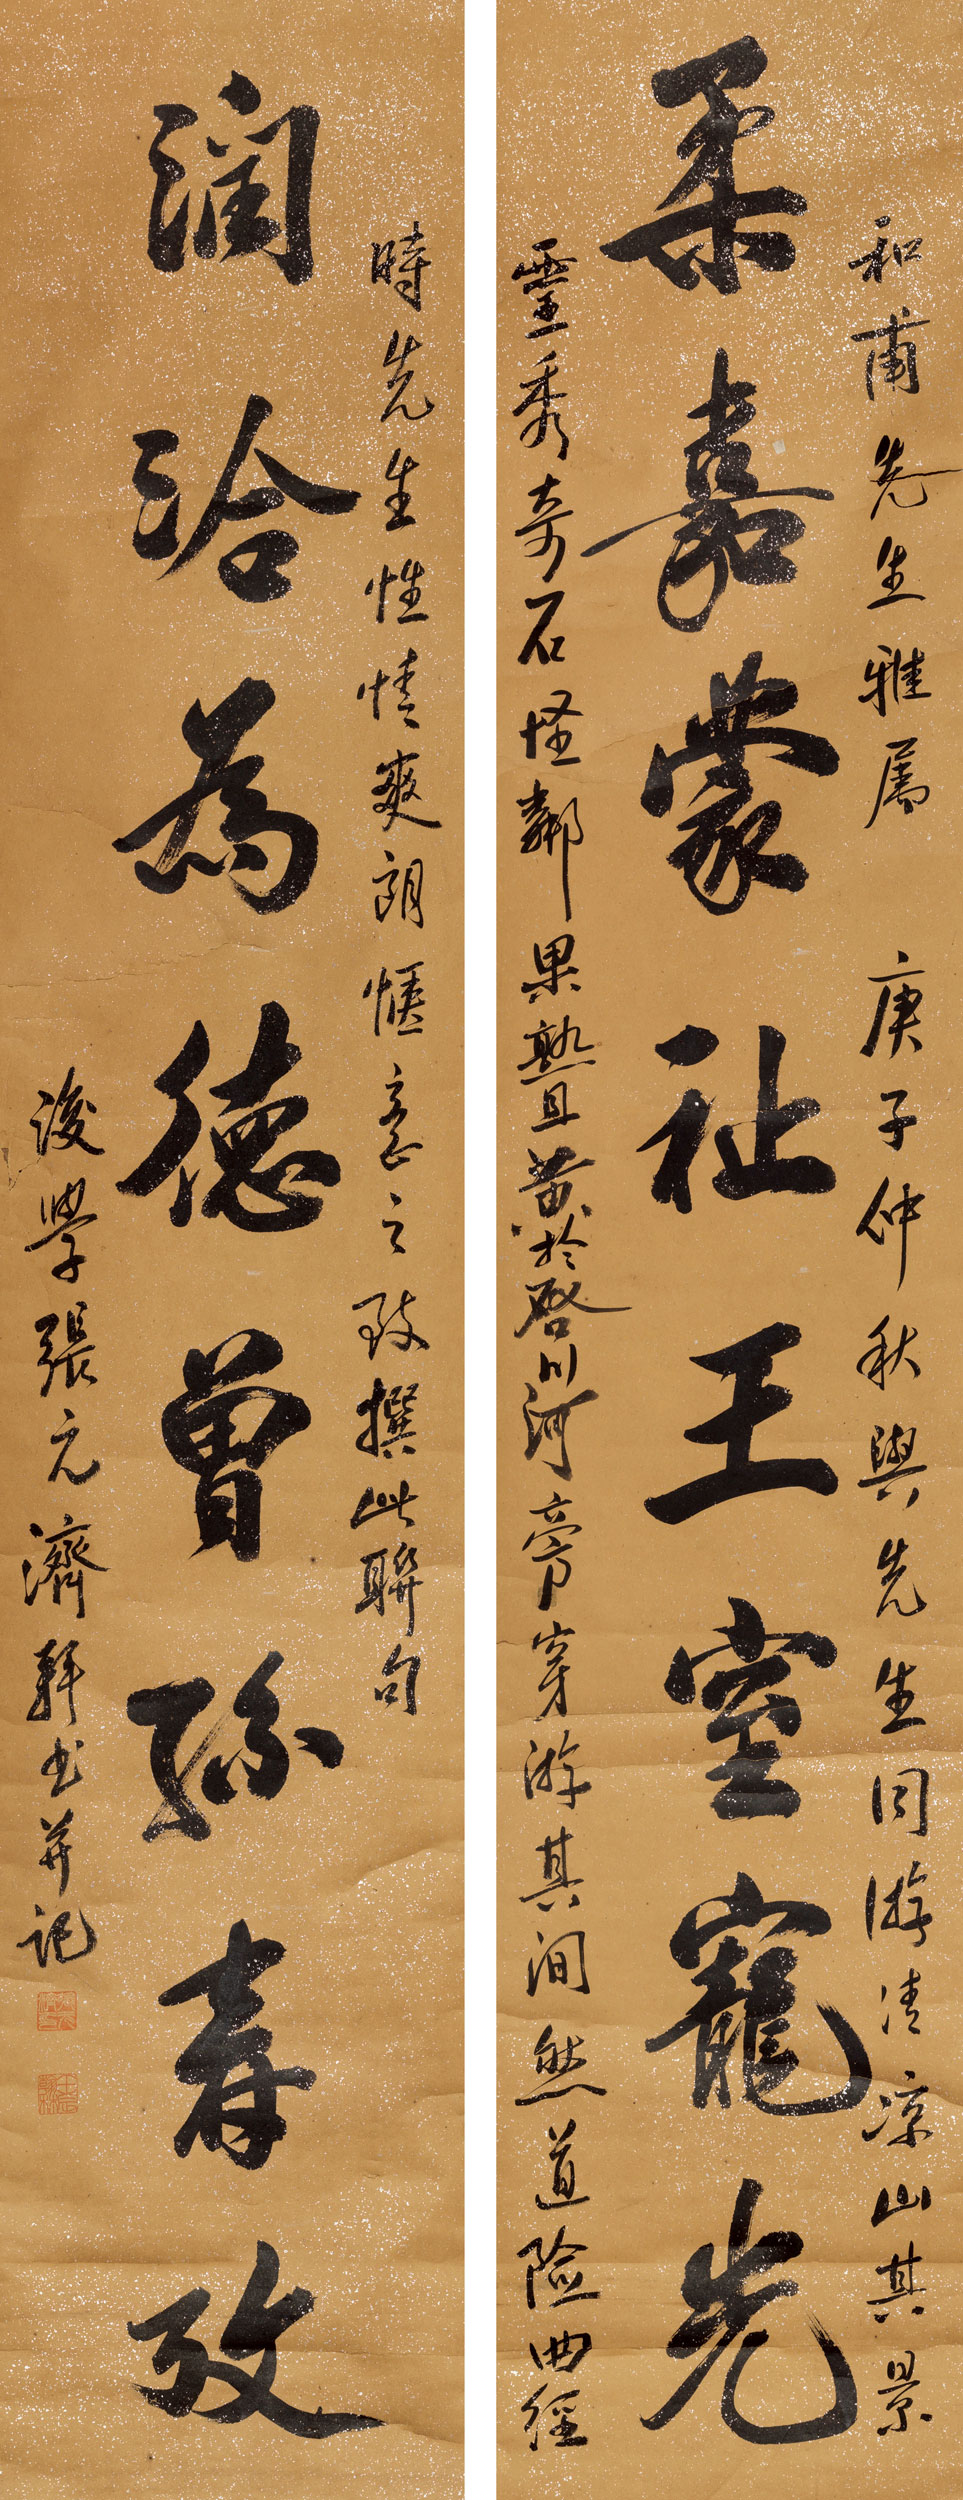 和甫先生雅属 庚子仲秋與先生同游清凉山其景
柔嘉蒙祉王室寵光
靈秀奇石怪鄰果熟且黄於啓川河旁穿游其间然道险曲徑
時先生性情爽朗惬意之致撰此聯句
润洽為德曾孫壽考
後學張元濟拜书并记